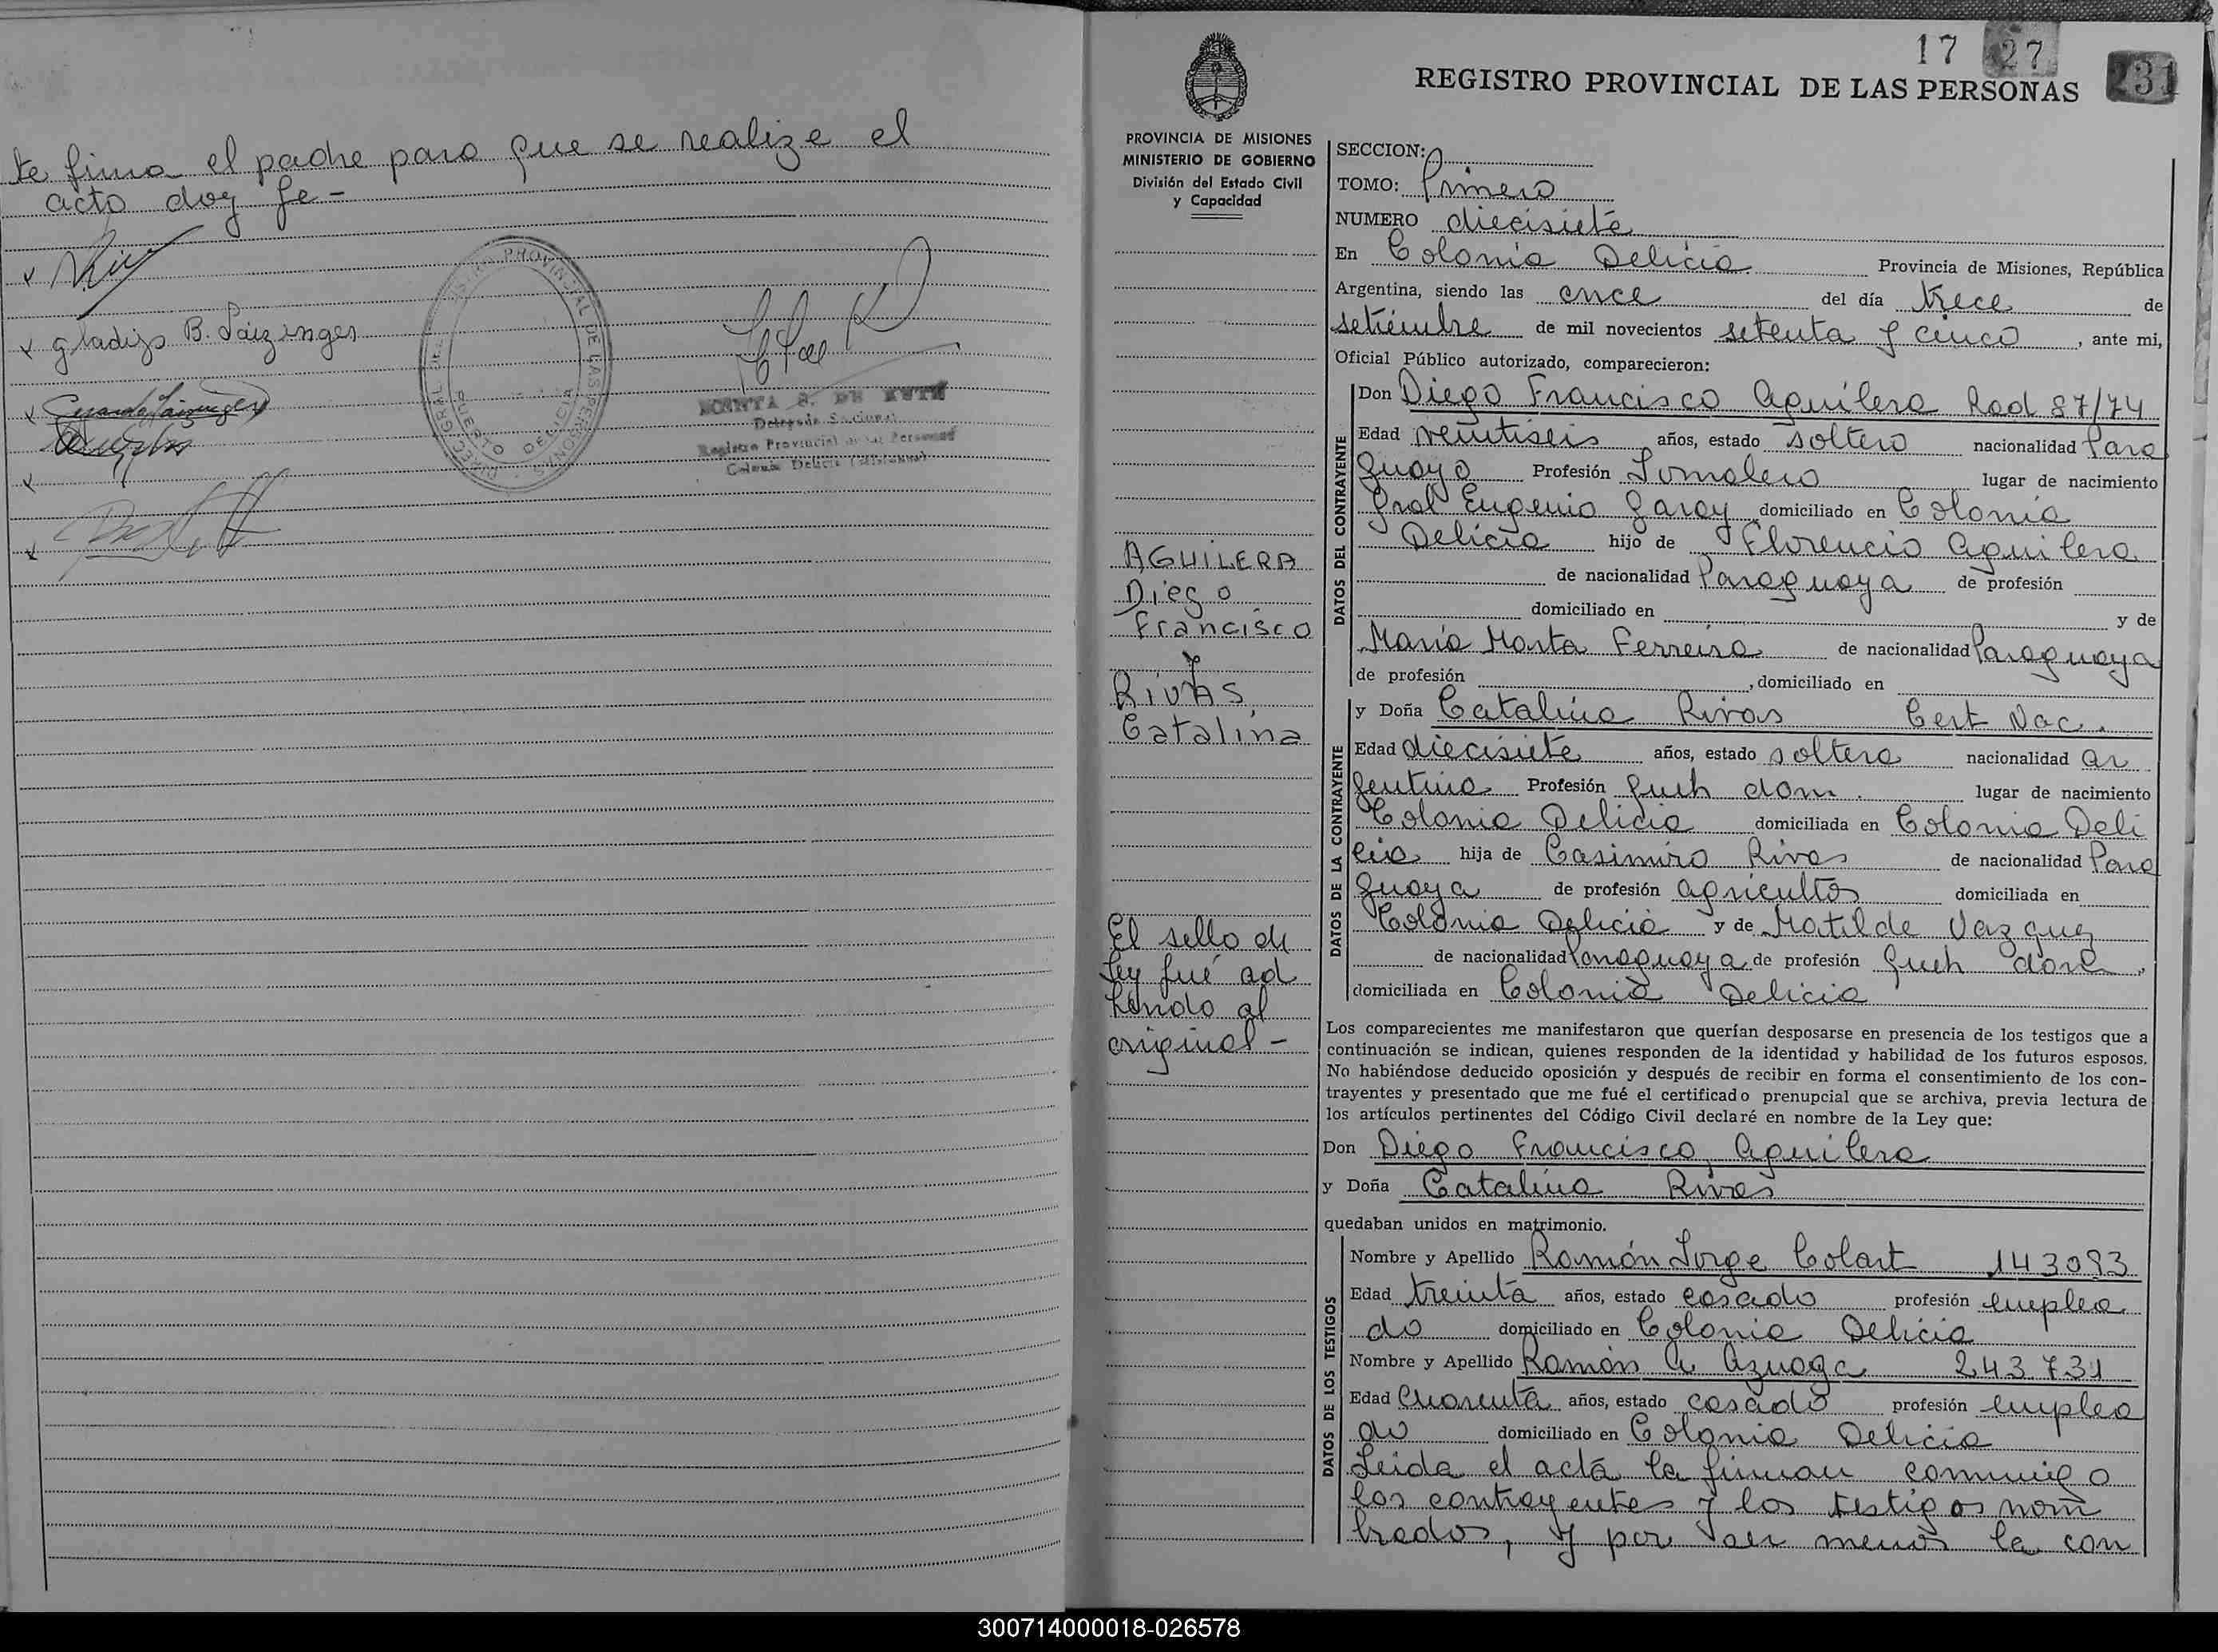 te firma el padre para que se realize el
acto doy fe -
gladizs B. Saizinger
REGISTRO PROVINCIAL DE LAS PERSONAS
DELICIA
DE
Delegada Seccional
Registro Provincial de las Personas
Colonia Delicia (Misiones)
17 27
231
REGISTRO PROVINCIAL DE LAS PERSONAS
PROVINCIA DE MISIONES
MINISTERIO DE GOBIERNO
División del Estado Civil
y Capacidad
SECCION:
TOMO: Primero
NUMERO diecisiete
En Colonia Delicia Provincia de Misiones, República
Argentina, siendo las once del día trece de
setiembre de mil novecientos setenta y cinco, ante mi,
Oficial Público autorizado, comparecieron:
DATOS DEL CONTRAYENTE
Don Diego Francisco Aguilera Rad 87/74
Edad veintiseis años, estado soltero nacionalidad Para
guaya Profesión Jornalero lugar de nacimiento
Gral Eugenio Garay domiciliado en Colonia
Delicia hijo de Florencio Aguilera
de nacionalidad Paraguaya de profesión
domiciliado en y de
María Marta Ferreira de nacionalidad Paraguaya
de profesión , domiciliado en
AGUILERA
Diego
Francisco
y
RIVAS
Catalina
DATOS DE LA CONTRAYENTE
y Doña Catalina Rivas Cert Nac.
Edad diecisiete años, estado soltera nacionalidad ar
gentina Profesión queh dom. lugar de nacimiento
Colonia Delicia domiciliada en Colonia Deli
cia hija de Casimiro Rivas de nacionalidad Para
guaya de profesión agricultor domiciliada en
Colonia Delicia y de Matilde Vazquez
de nacionalidad Paraguaya de profesión queh dom,
domiciliada en Colonia Delicia
El sello de
ley fué ad
herido al
original -
Los comparecientes me manifestaron que querían desposarse en presencia de los testigos que a
continuación se indican, quienes responden de la identidad y habilidad de los futuros esposos.
No habiéndose deducido oposición y después de recibir en forma el consentimiento de los con-
trayentes y presentado que me fué el certificado prenupcial que se archiva, previa lectura de
los artículos pertinentes del Código Civil declaré en nombre de la Ley que:
Don Diego Francisco Aguilera
y Doña Catalina Rivas
quedaban unidos en matrimonio.
DATOS DE LOS TESTIGOS
Nombre y Apellido Ramón Jorge Colart 143093
Edad treinta años, estado casado profesión emplea
do domiciliado en Colonia Delicia
Nombre y Apellido Ramón A Azuaga 243731
Edad Cuarenta años, estado casado profesión emplea
do domiciliado en Colonia Delicia
Leida el acta la firman conmigo
los contrayentes y los testigos nom
brados, y por ser menor la con
300714000018-026578